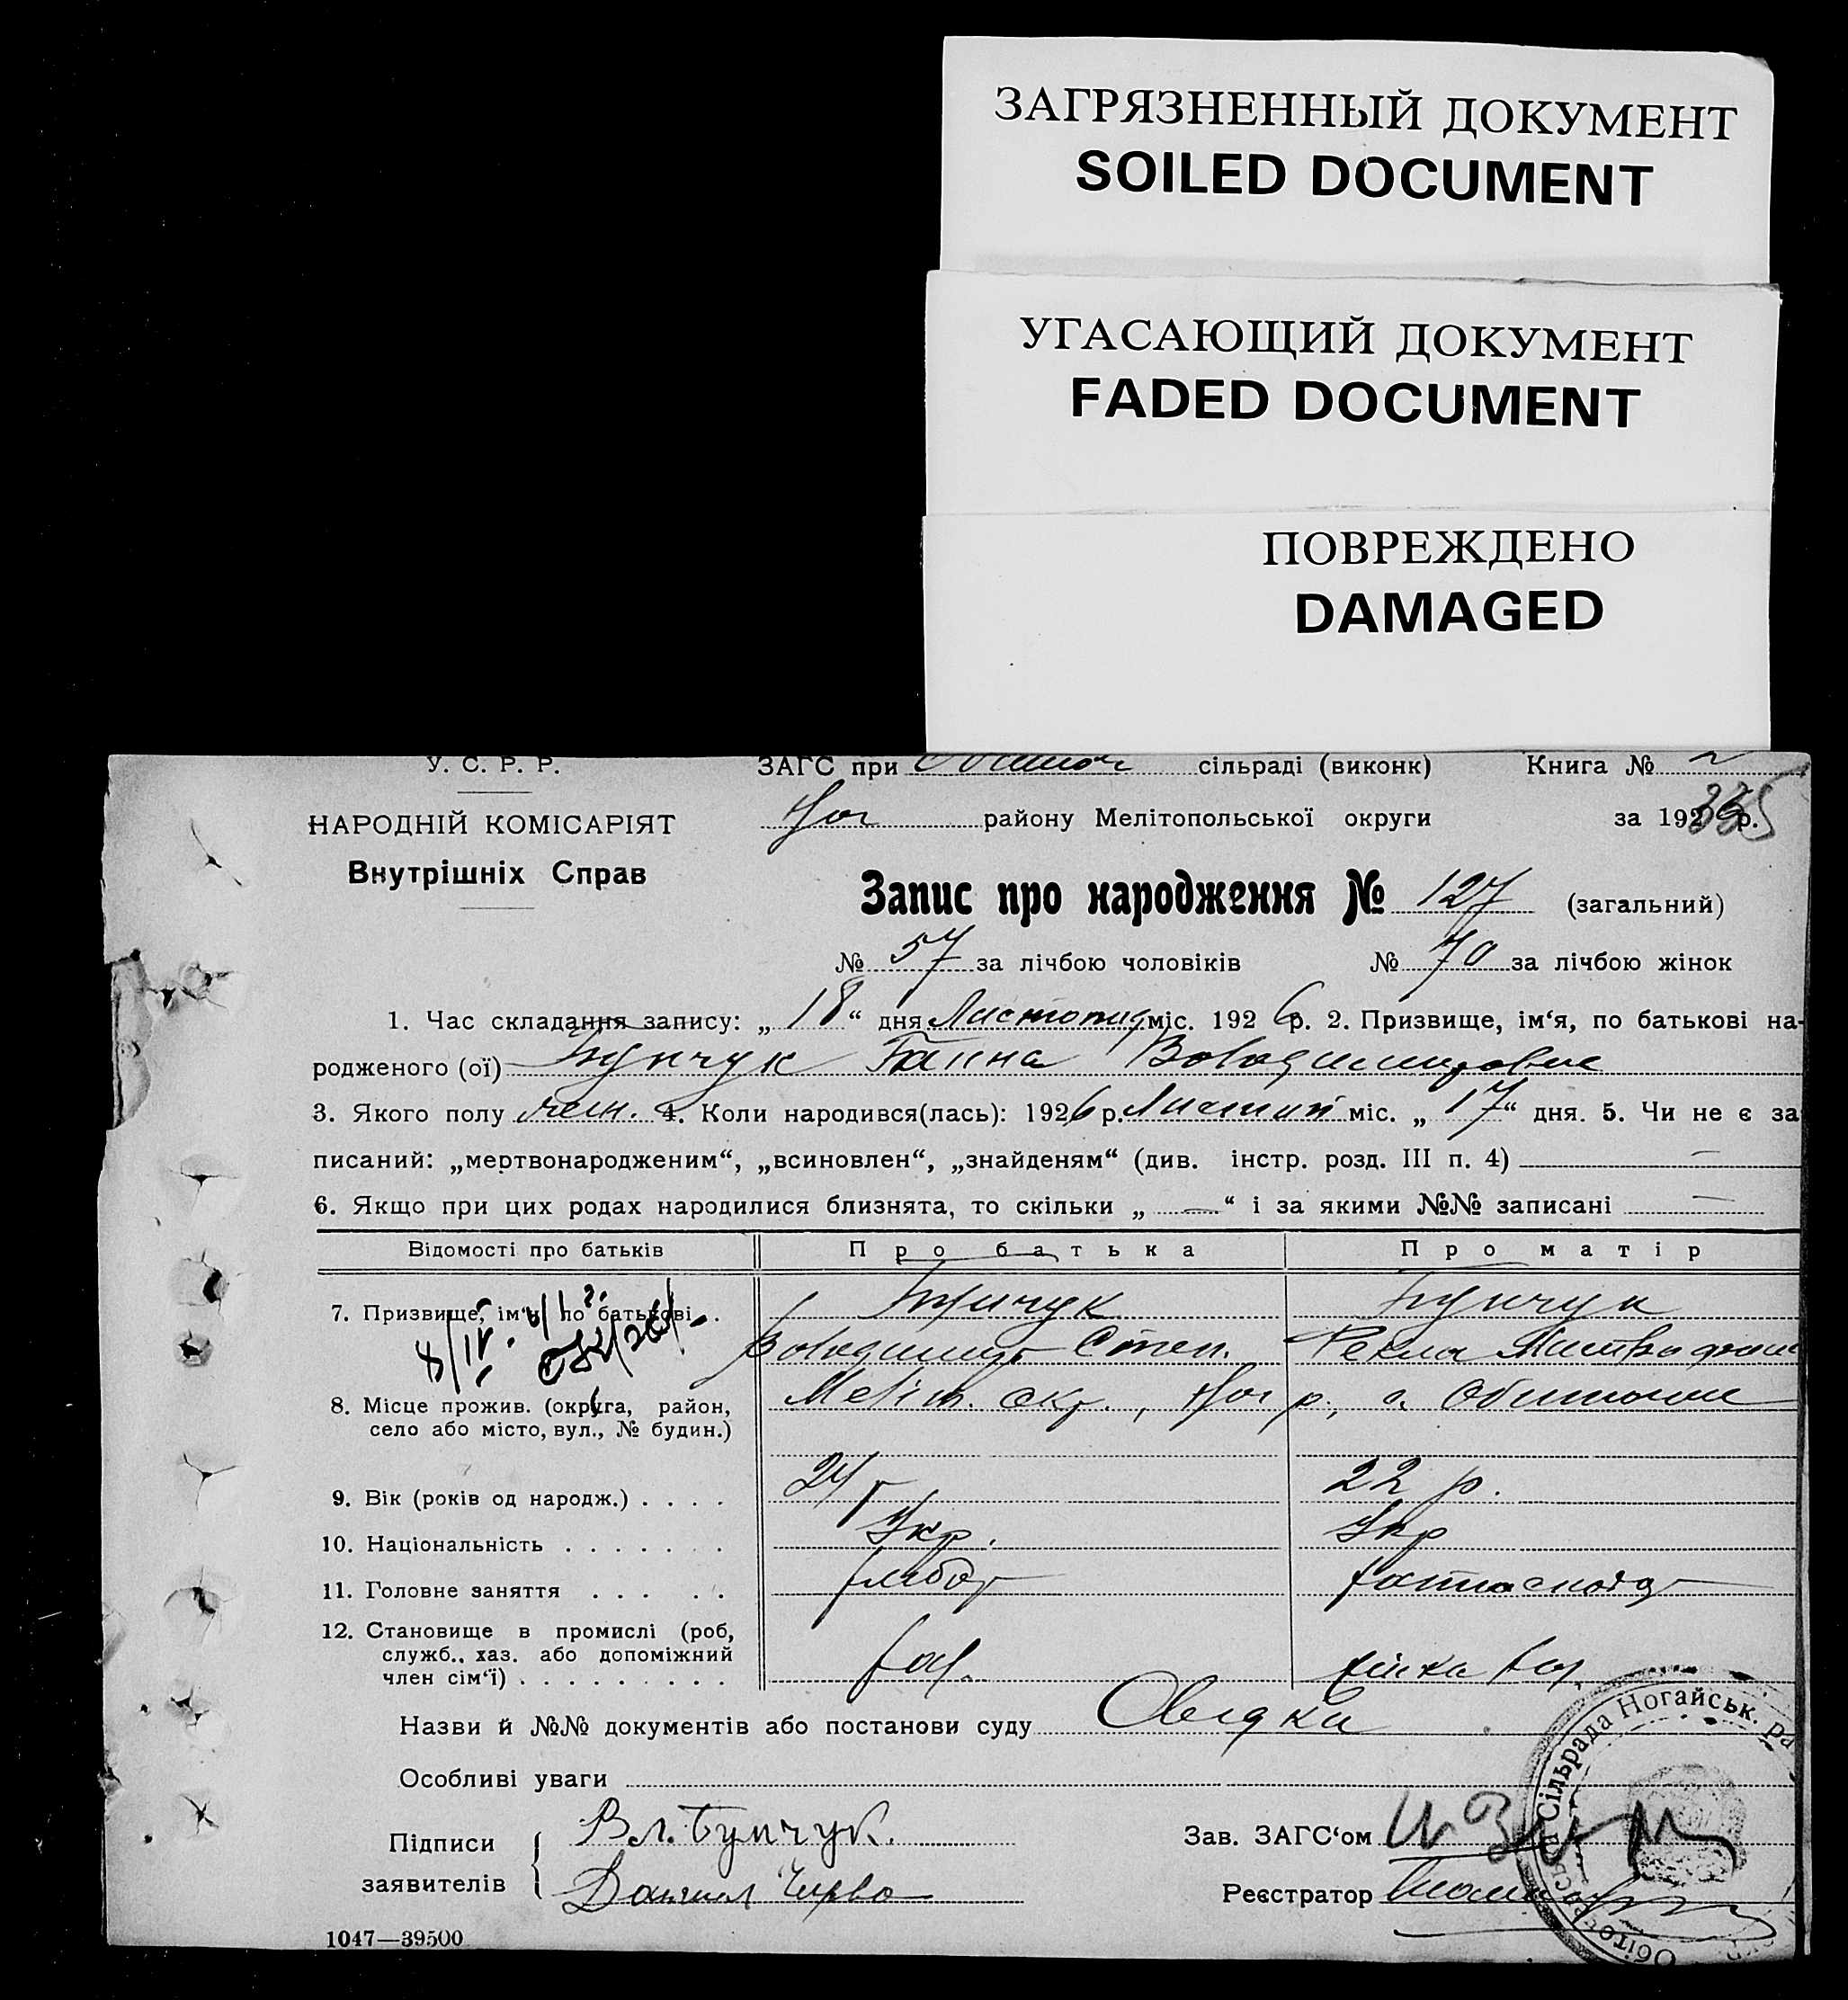 ЗАГРЯЗНЕННЫЙ ДОКУМЕНТ
SOILED DOCUMENT
УГАСАЮЩИЙ ДОКУМЕНТ
FADED DOCUMENT
ПОВРЕЖДЕНО
DAMAGED
У. С. Р. Р. ЗАГС при сільраді (виконк) Книга № 2
НАРОДНІЙ КОМІСАРІЯТ Ног району Мелітопольської округи за 1926 р. 335
Внутрішніх Справ
Запис про народження № 127 (загальний)
№ 57 за лічбою чоловіків № 70 за лічбою жінок
1. Час складання запису: „ 18 “ дня Листопад міс. 1926 р. 2. Призвище, ім‘я, по батькові на-
родженого (ої) Бунчук Ганна Володимировна
3. Якого полу жен. 4. Коли народився(лась): 1926 р. Листоп міс. „ 17 “ дня. 5. Чи не є за
писаний: „мертвонародженим“, „всиновлен“, „знайденям“ (див. інстр. розд. III п. 4) —
6. Якщо при цих родах народилися близнята, то скільки „ — “ і за якими №№ записані —
Відомості про батьків Про батька Про матір
7. Призвище, ім‘я, по батькові . . Бунчук Бунчук
Володимир Степ. Текла
8. Місце прожив. (округа, район, Меліт. окр., Ног р., с. Обиточне
село або місто, вул., № будин.)
9. Вік (років од народж.) . . . . 24 р 22 р.
10. Національність . . . . . . . Укр. Укр
11. Головне заняття . . . . . хлібор
12. Становище в промислі (роб,
служб., хаз. або допоміжний
член сім‘ї) . . . . . . . . . хаз. жінка хаз.
Назви й №№ документів або постанови суду
Особливі уваги
Підписи Вл. Бунчук. Зав. ЗАГС‘ом
заявителів Данило Чирва Реєстратор
Сільрада Ногайськ. ра
1047—39500